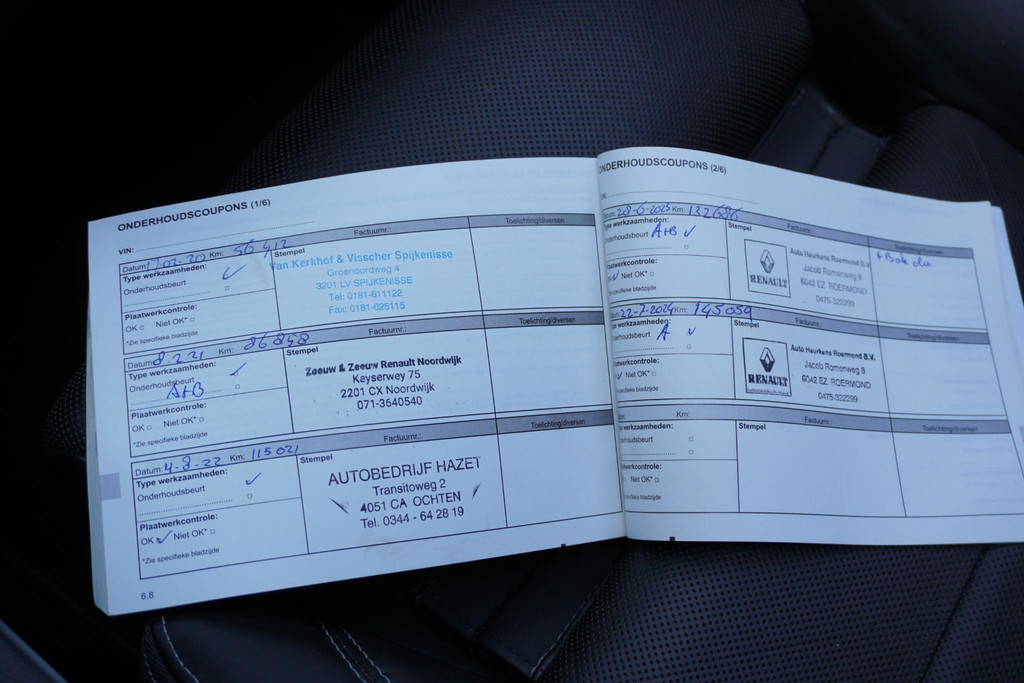 ONDERHOUDSCOUPONS (1/6)
VIN:
Datum: 17-02-20 Km: 56 412 Factuurnr.: Toelichting/diversen
Type werkzaamheden: ✓
Onderhoudsbeurt
Plaatwerkcontrole:
OK □ Niet OK* □
*Zie specifieke bladzijde
Stempel
Van Kerkhof & Visscher Spijkenisse
Groenoordweg 4
3201 LV SPIJKENISSE
Tel: 0181-611122
Fax: 0181-625115
Datum: 8.2.21 Km: 86848 Factuurnr.: Toelichting/diversen
Type werkzaamheden:
Onderhoudsbeurt ✓
A+B
Plaatwerkcontrole:
OK □ Niet OK* □
*Zie specifieke bladzijde
Stempel
Zeeuw & Zeeuw Renault Noordwijk
Keyserwey 75
2201 CX Noordwijk
071-3640540
Datum: 4-8-22 Km: 115021 Factuurnr.: Toelichting/diversen
Type werkzaamheden:
Onderhoudsbeurt ✓
Plaatwerkcontrole:
OK ✓ Niet OK* □
*Zie specifieke bladzijde
Stempel
AUTOBEDRIJF HAZET
Transitoweg 2
4051 CA OCHTEN
Tel. 0344 - 64 28 19
6.8
ONDERHOUDSCOUPONS (2/6)
Datum: 28-6-2023 Km: 132686 Factuurnr.: Toelichting/diversen
Type werkzaamheden:
Onderhoudsbeurt A+B ✓
Plaatwerkcontrole:
✓ Niet OK* □
specifieke bladzijde
Stempel
RENAULT
Auto Heurkens Roermond B.V.
Jacob Romenweg 8
6042 EZ ROERMOND
0475-322299
22-7-2024 Km: 145059 Factuurnr.: Toelichting/diversen
werkzaamheden:
Onderhoudsbeurt A ✓
Plaatwerkcontrole:
Niet OK* □
specifieke bladzijde
Stempel
RENAULT
Auto Heurkens Roermond B.V.
Jacob Romenweg 8
6042 EZ ROERMOND
0475-322299
Km: Factuurnr.: Toelichting/diversen
werkzaamheden:
Stempel
Niet OK* □
specifieke bladzijde